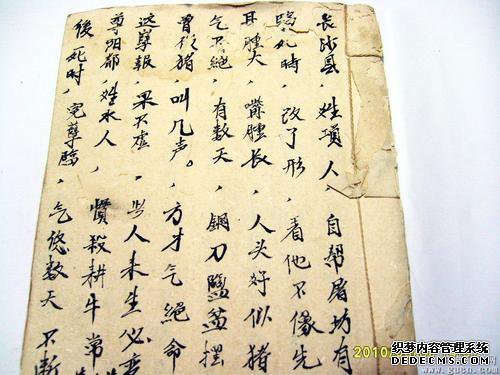 长沙县，姓项人，自帮屠坊有
临死時，改了形，看他不像先
耳腫大，嘴腫长，人头好似猪
气不絕，有数天，鋼刀臨盆摆
曾似猪，叫几声。方才气絕命
这孽報，果不虚，此人未生必
尊阳都，姓水人，慣殺耕牛常
後死时，冤孽臨，气悠数天不断
2010
织梦内容管理系统
DEDECMS.COM